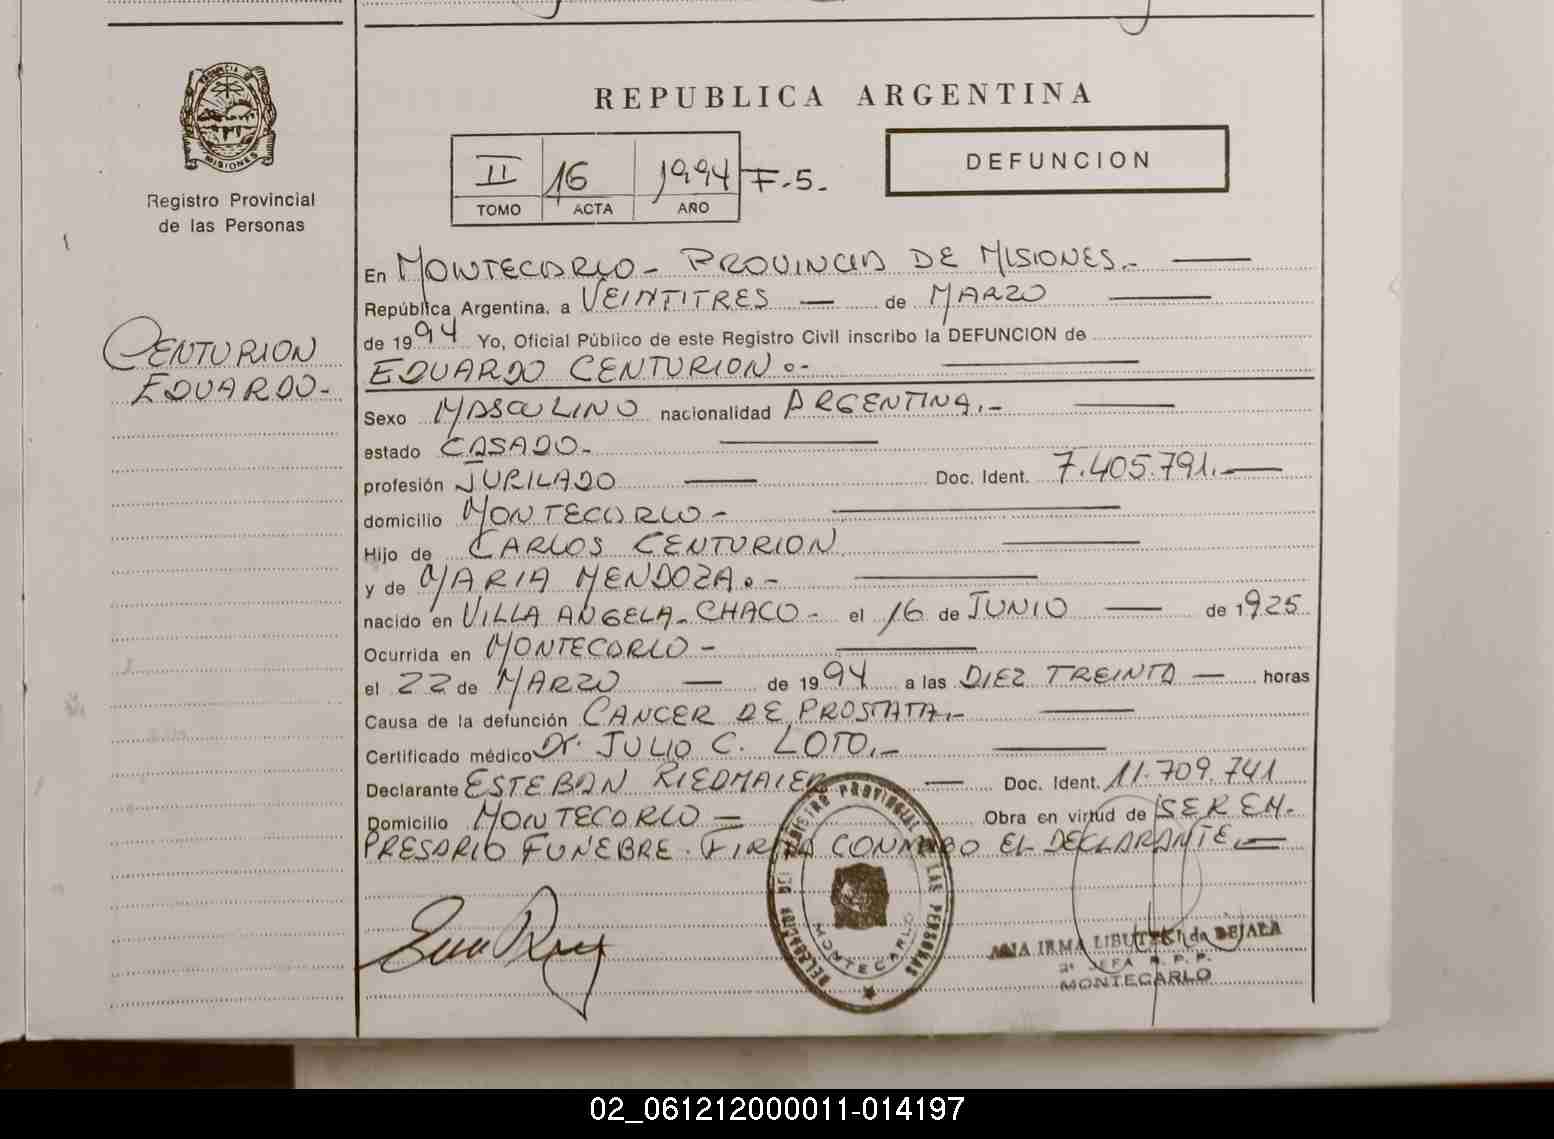 PROVINCIA DE
MISIONES
Registro Provincial
de las Personas
CENTURION
EDUARDO-
REPUBLICA ARGENTINA
II 16 1994 F.5.
TOMO ACTA AÑO
DEFUNCION
En MONTECARLO - PROVINCIA DE MISIONES.-
República Argentina, a VEINTITRES — de MARZO
de 1994 Yo, Oficial Público de este Registro Civil inscribo la DEFUNCION de
EDUARDO CENTURION.-
Sexo MASCULINO nacionalidad ARGENTINA.-
estado CASADO-
profesión JUBILADO Doc. Ident. 7.405.791.-
domicilio MONTECARLO-
Hijo de CARLOS CENTURION
y de MARIA MENDOZA.-
nacido en VILLA ANGELA-CHACO- el 16 de JUNIO — de 1925
Ocurrida en MONTECARLO-
el 22 de MARZO — de 1994 a las DIEZ TREINTA — horas
Causa de la defunción CANCER DE PROSTATA.-
Certificado médico Dr. JULIO C. LOTO.-
Declarante ESTEBAN RIEDMAIER — Doc. Ident. 11.709.741
Domicilio MONTECARLO — Obra en virtud de SER EM-
PRESARIO FUNEBRE. FIRMA CONMIGO EL DECLARANTE.-
DELEGACION DEL REGISTRO PROVINCIAL DE LAS PERSONAS
MONTECARLO
ANA IRMA de BEJALA
2ª JEFA R. P. P.
MONTECARLO
02_061212000011-014197